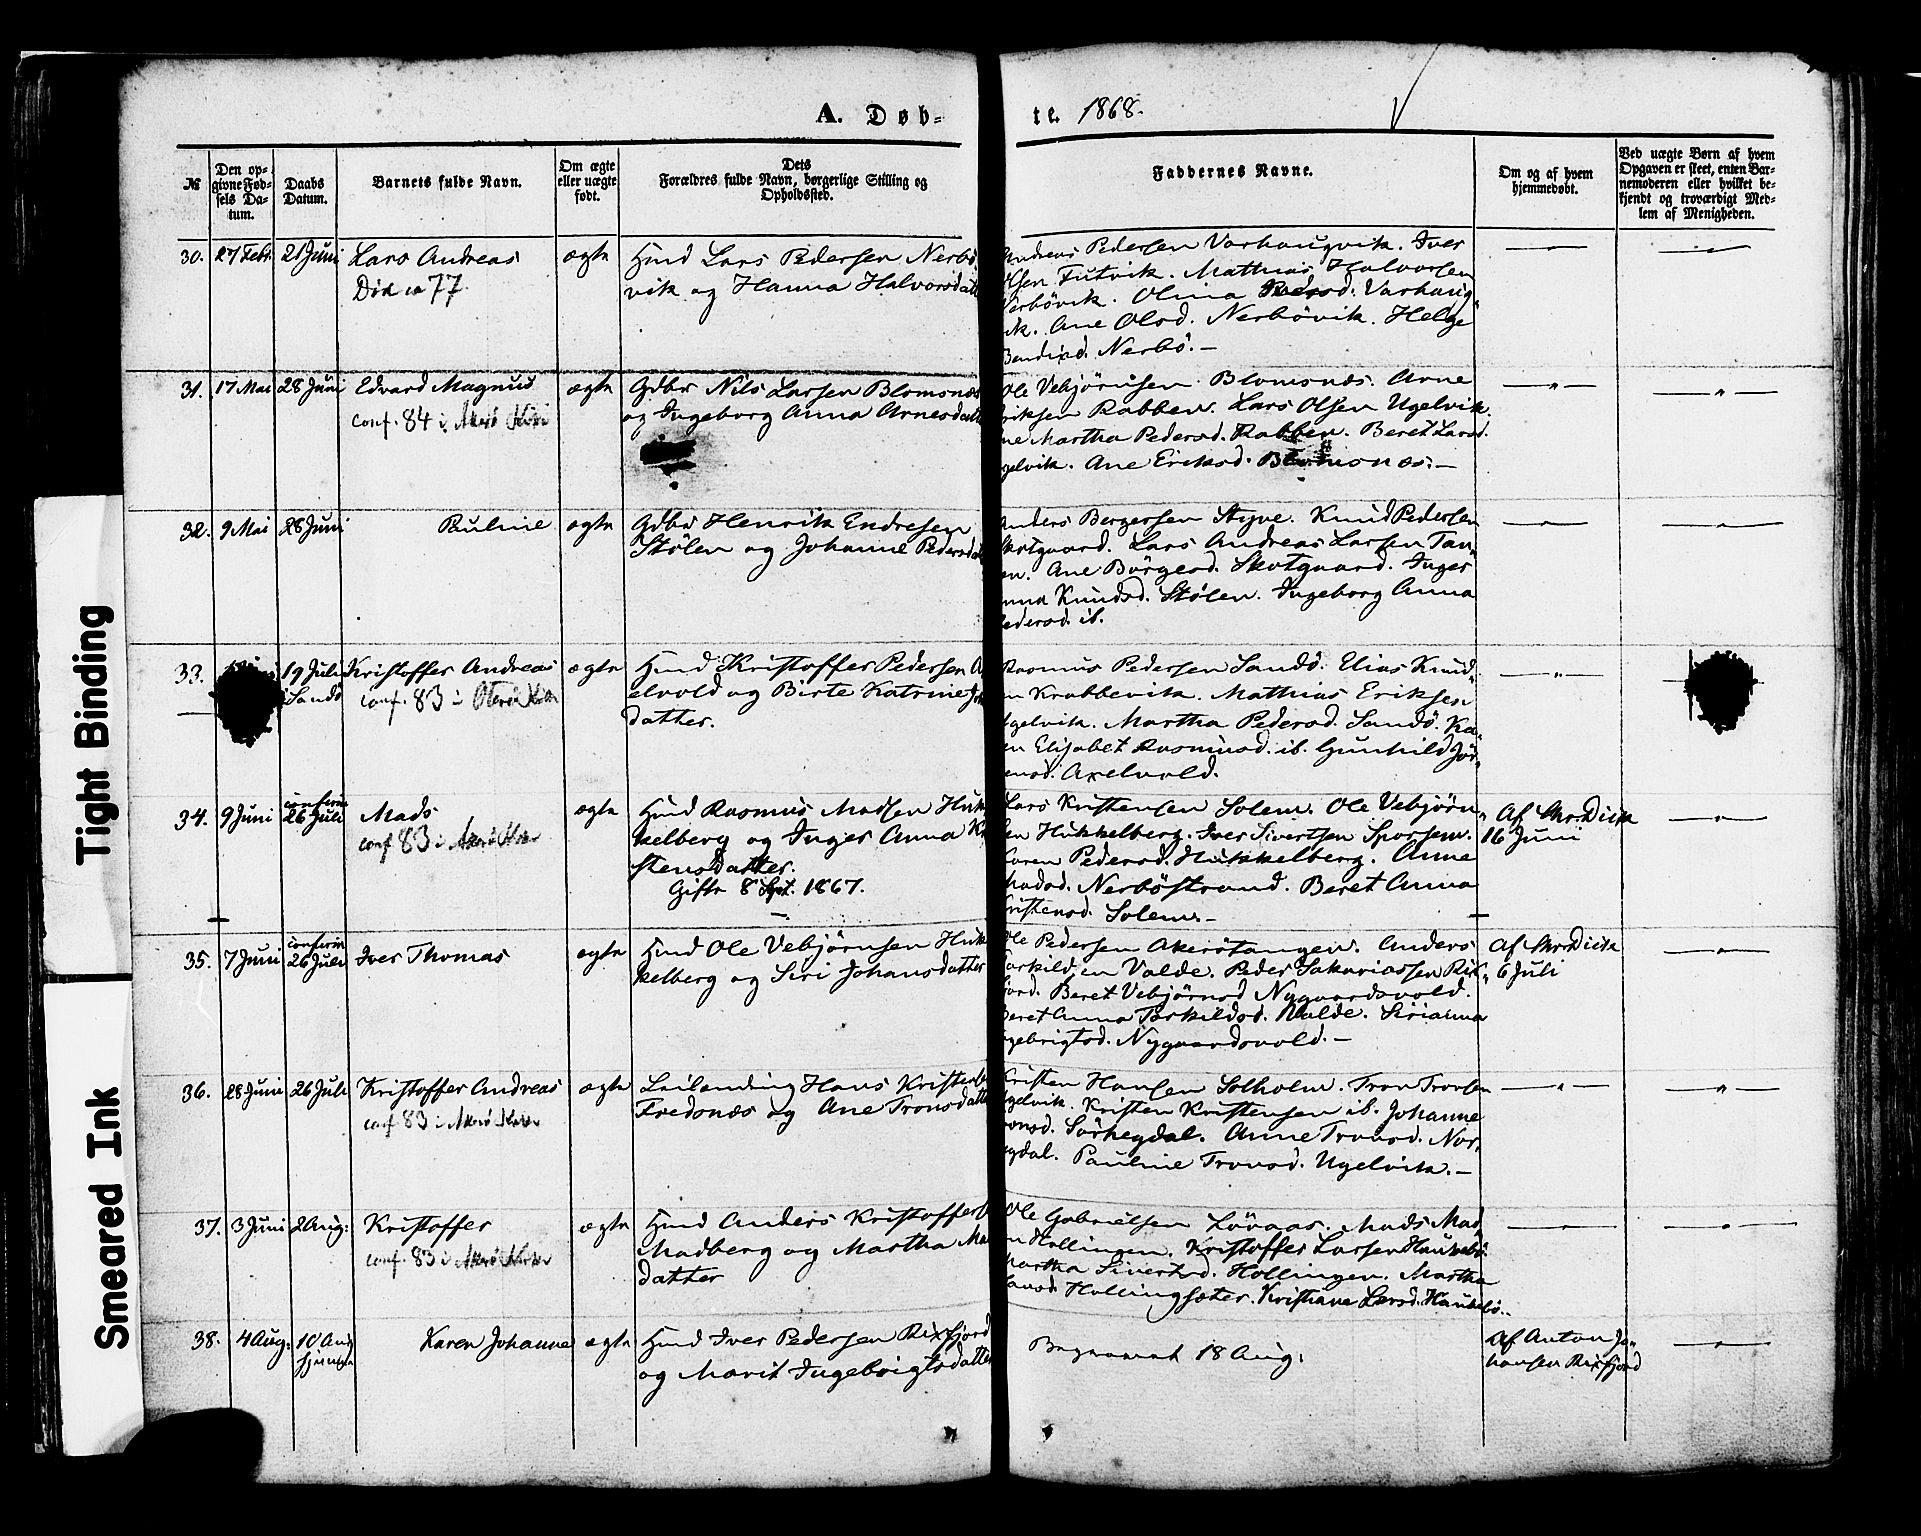 A. Døb-
te. 1868.
№
Den op-
givne Fød-
sels Da-
tum.
Daabs
Datum.
Barnets fulde Navn.
Om ægte
eller uægte
født.
Dets
Forældres fulde Navn, borgerlige Stilling og
Opholdssted.
Faddernes Navne.
Om og af hvem
hjemmedøbt.
Ved uægte Børn af hvem
Opgaven er skeet, enten Bar-
nemoderen eller hvilket be-
kjendt og troværdigt Med-
lem af Menigheden.
30. 27 Febr. 21 Juni Lars Andreas ægte Hmd Lars Pedersen Nerbö
Död 77
vik og Hanna Halvorsdatt
Andreas Pedersen Varhaugvik. Iver
Olsen Futvik. Mathias Halvorsen
Nerbövik. Olina Pedersd. Varhaug-
vik. Ane Olsd. Nerbövik. Helge
Nerbö.
31. 17 Mai 28 Juni Edvard Magnus ægte Gdbr Nils Larsen Blomsnæs
conf. 84 i
og Ingeborg Anna Arnesdatt
Ole Vebjörnsen Blomsnæs. Arne
riksen Rabben. Lars Olsen Ugelvik.
ne Martha Pedersd. Rabben. Beret Larsd.
gelvik. Ane Eriksd. Blomsnæs.
32. 9 Mai 28 Juni Pauline ægte Gdbr Henrik Endresen
Stölen og Johanne Pedersd
Anders Bergersen Styve. Knud Pedersen
Skotgaard. Lars Andreas Larsen Tan-
en. Ane Börgesd. Skotgaard. Inger
Anna Knudsd. Stölen. Ingeborg Anna
Pedersd. ib.
33. 19 Juli Kristoffer Andreas ægte Hmd Kristoffer Pedersen A
Sandö
conf. 83 i
elvold og Birte Katrine
datter.
Rasmus Pedersen Sandö. Elias Knud-
n Krabbevik. Mathias Eriksen
Ugelvik. Martha Pedersd. Sandö. Ka-
n Elisabet Rasmusd. ib. Gunhild Jör-
ensd. Axelvold.
34. 9 Juni confirm 26 Juli Mads ægte Hmd Rasmus Madsen Huk
conf. 83 i
kelberg og Inger Anna K
stensdatter.
Gifte 8 Sept. 1867.
Lars Kristensen Solem. Ole Vebjörn-
sen Hukkelberg. Iver Sivertsen Sporsem.
Karen Pedersd. Hukkelberg. Anne
Madsd. Nerböstrand. Beret Anna
Kristensd. Solem.
16 Juni
35. 7 Juni confirm 26 Juli Iver Thomas ægte Hmd Ole Vebjörnsen Huk
kelberg og Siri Johansdatter
Ole Pedersen Akerötangen. Anders
Torkildsen Valde. Peder Sakariassen Rix-
fjord. Beret Vebjörnsd Nygaardsvold.
Beret Anna Torkildsd. Valde. Serianna
gebrigtsd. Nygaardsvold.
6 Juli
36. 28 Juni 26 Juli Kristoffer Andreas ægte Leilending Hans Kristens
conf. 83 i
Fredsnæs og Ane Tronsdatte
Kristen Hansen Solholm. Tron Tronsen
gelvik. Kristen Kristensen ib. Johanne
ronsd. Sörhegdal. Anne Tronsd. Nor-
gdal. Pauline Tronsd. Ugelvik.
37. 3 Juni 2 Aug: Kristoffer ægte Hmd Anders Kristoffers
conf. 83 i
Madberg og Martha Ma
datter
Ole Gabrielsen Lövaas. Mads Mad-
n Hollingen. Kristoffer Larsen Haukebö.
Martha Sivertsd. Hollingen. Martha
Hollingsæter. Kristiane Larsd. Haukebö.
38. 4 Aug: 10 Aug Karen Johanne ægte Hmd Iver Pedersen Rixfjord
hjemme
og Marit Ingebrigtsdatter
18 Aug.
Af Anton Jo-
hansen Rixfjord
Tight Binding
Smeared Ink